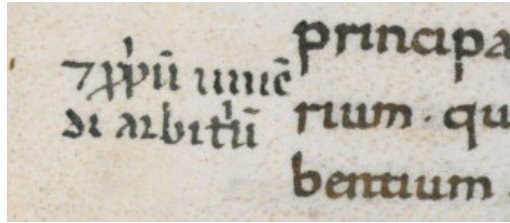 ⁊ ꝓpͥū uiuē
di arbitͥū
principa
rium · qu
bentium